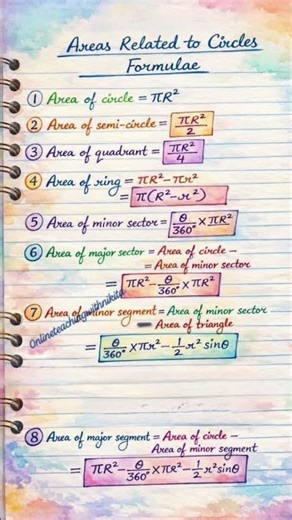 Areas Related to Circles
Formulae
① Area of circle = πR²
② Area of semi-circle = πR²/2
③ Area of quadrant = πR²/4
④ Area of ring = πR² − πr²
= π(R² − r²)
⑤ Area of minor sector = θ/360° × πR²
⑥ Area of major sector = Area of circle −
= Area of minor sector
= πR² − θ/360° × πR²
⑦ Area of minor segment = Area of minor sector
− Area of triangle
Onlineteachingwithnikita
= θ/360° × πr² − 1/2 r² sinθ
⑧ Area of major segment = Area of circle −
Area of minor segment
= πR² − θ/360° × πr² − 1/2 r² sinθ